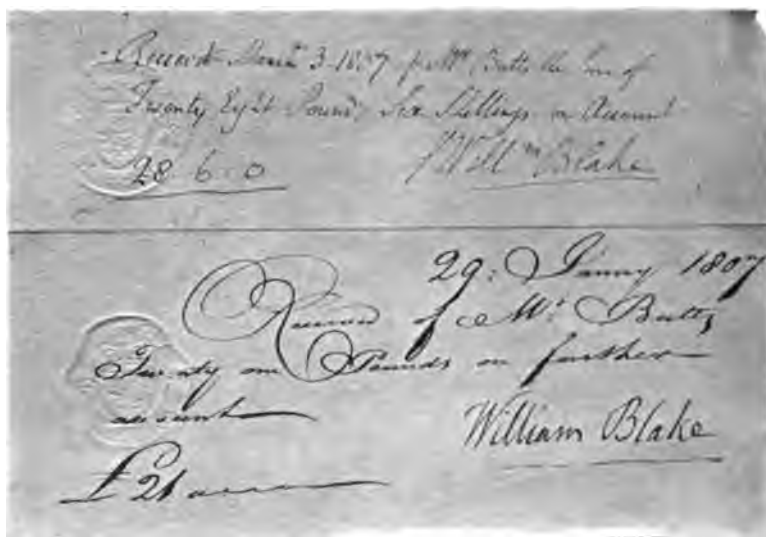 Receivd March 3 1807 of Mr Butts the Sum of
Twenty Eight Pounds Six Shillings on Account
28 6 0 Willm Blake
29: Janry 1807
Received of Mr Butts
Twenty one Pounds on further
account
William Blake
£21